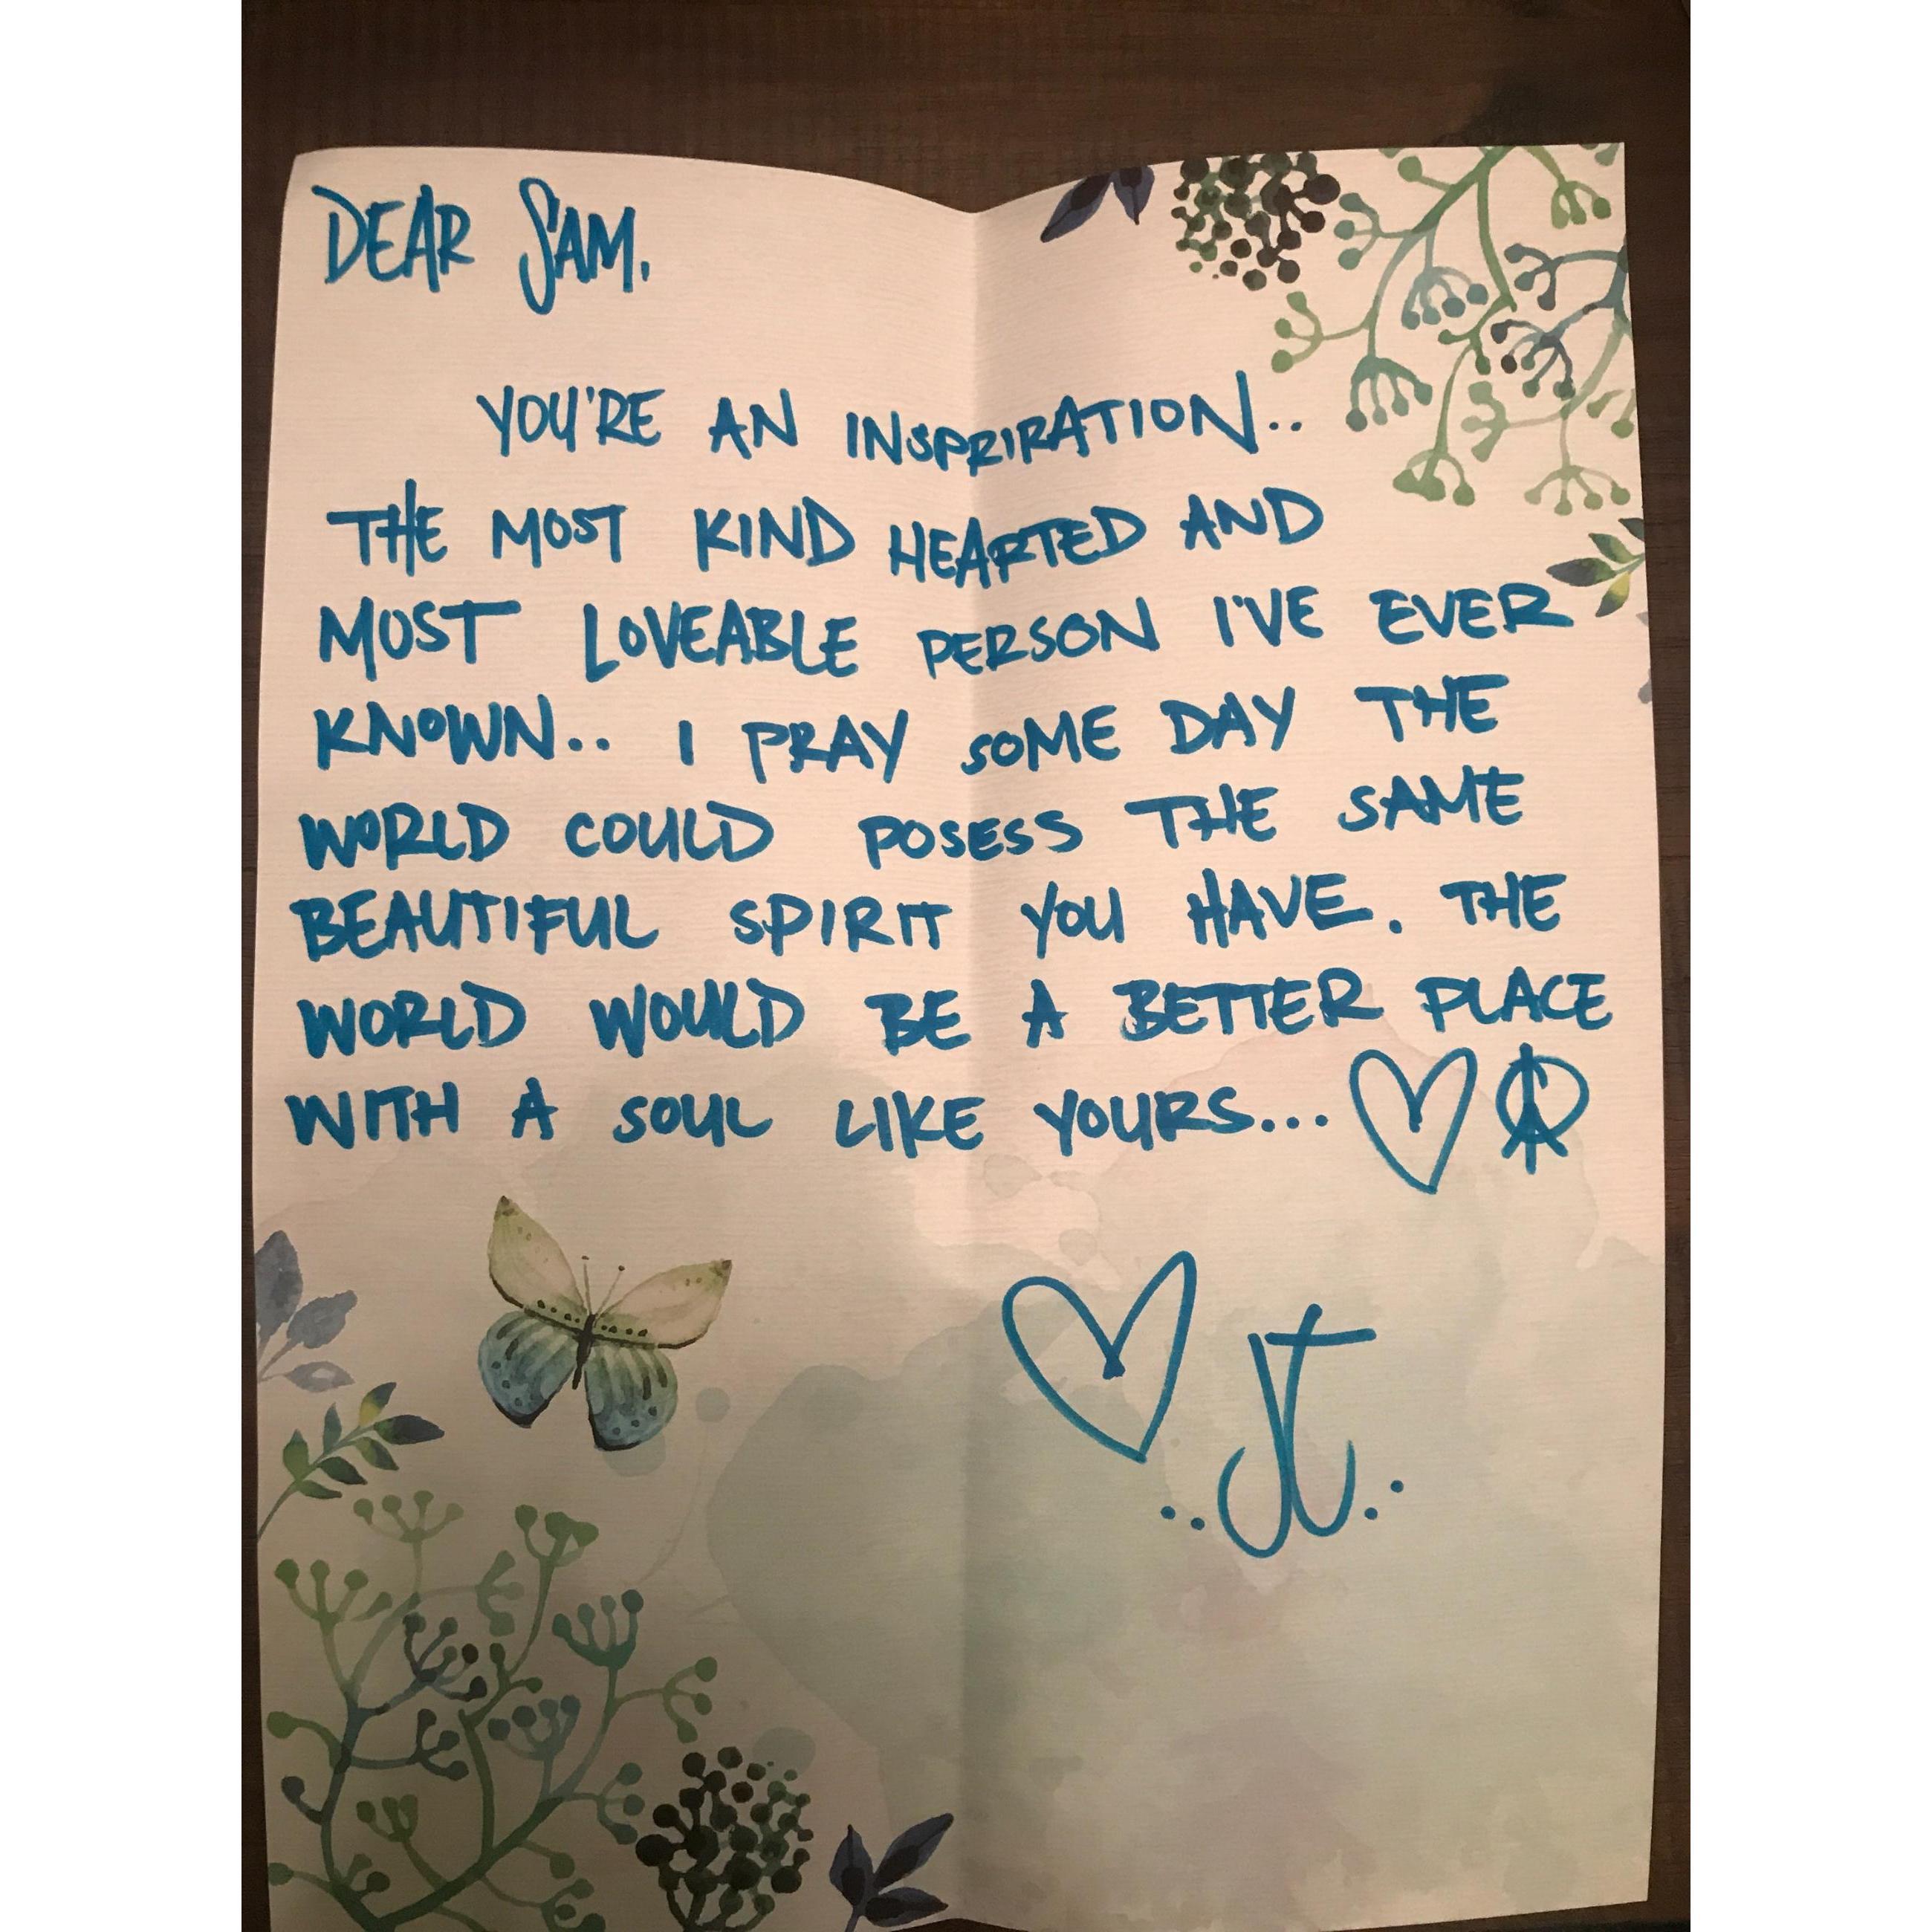 DEAR SAM.
YOU'RE AN INSPRIRATION..
THE MOST KIND HEARTED AND
MOST LOVEABLE PERSON I'VE EVER
KNOWN.. I PRAY SOME DAY THE
WORLD COULD POSESS THE SAME
BEAUTIFUL SPIRIT YOU HAVE. THE
WORLD WOULD BE A BETTER PLACE
WITH A SOUL LIKE YOURS...
..JT..